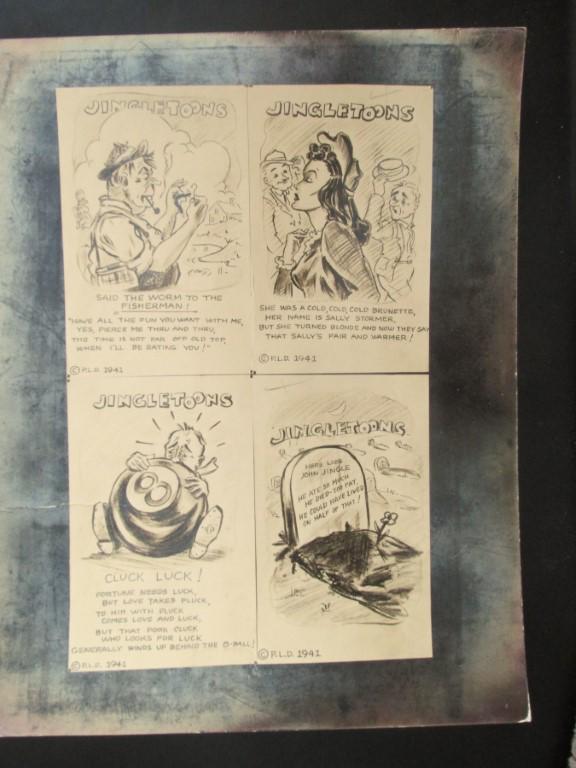 JINGLETOONS
SAID THE WORM TO THE
FISHERMAN!
"HAVE ALL THE FUN YOU WANT WITH ME,
YES, PIERCE ME THRU AND THRU,
THE TIME IS NOT FAR OFF OLD TOP,
WHEN I'LL BE EATING YOU!"
© P.L.D. 1941
JINGLETOONS
SHE WAS A COLD, COLD, COLD BRUNETTE,
HER NAME IS SALLY STORMER,
BUT SHE TURNED BLONDE AND NOW THEY SAY
THAT SALLY'S FAIR AND WARMER!
© P.L.D. 1941
JINGLETOONS
8
CLUCK LUCK!
FORTUNE NEEDS LUCK,
BUT LOVE TAKES PLUCK,
TO HIM WITH PLUCK
COMES LOVE AND LUCK,
BUT THAT POOR CLUCK
WHO LOOKS FOR LUCK
GENERALLY WINDS UP BEHIND THE 8-BALL!
© P.L.D. 1941
JINGLETOONS
HERE LIES
JOHN JINGLE
HE ATE SO MUCH
HE DIED TOO FAT,
HE COULD HAVE LIVED
ON HALF OF THAT!
© P.L.D. 1941